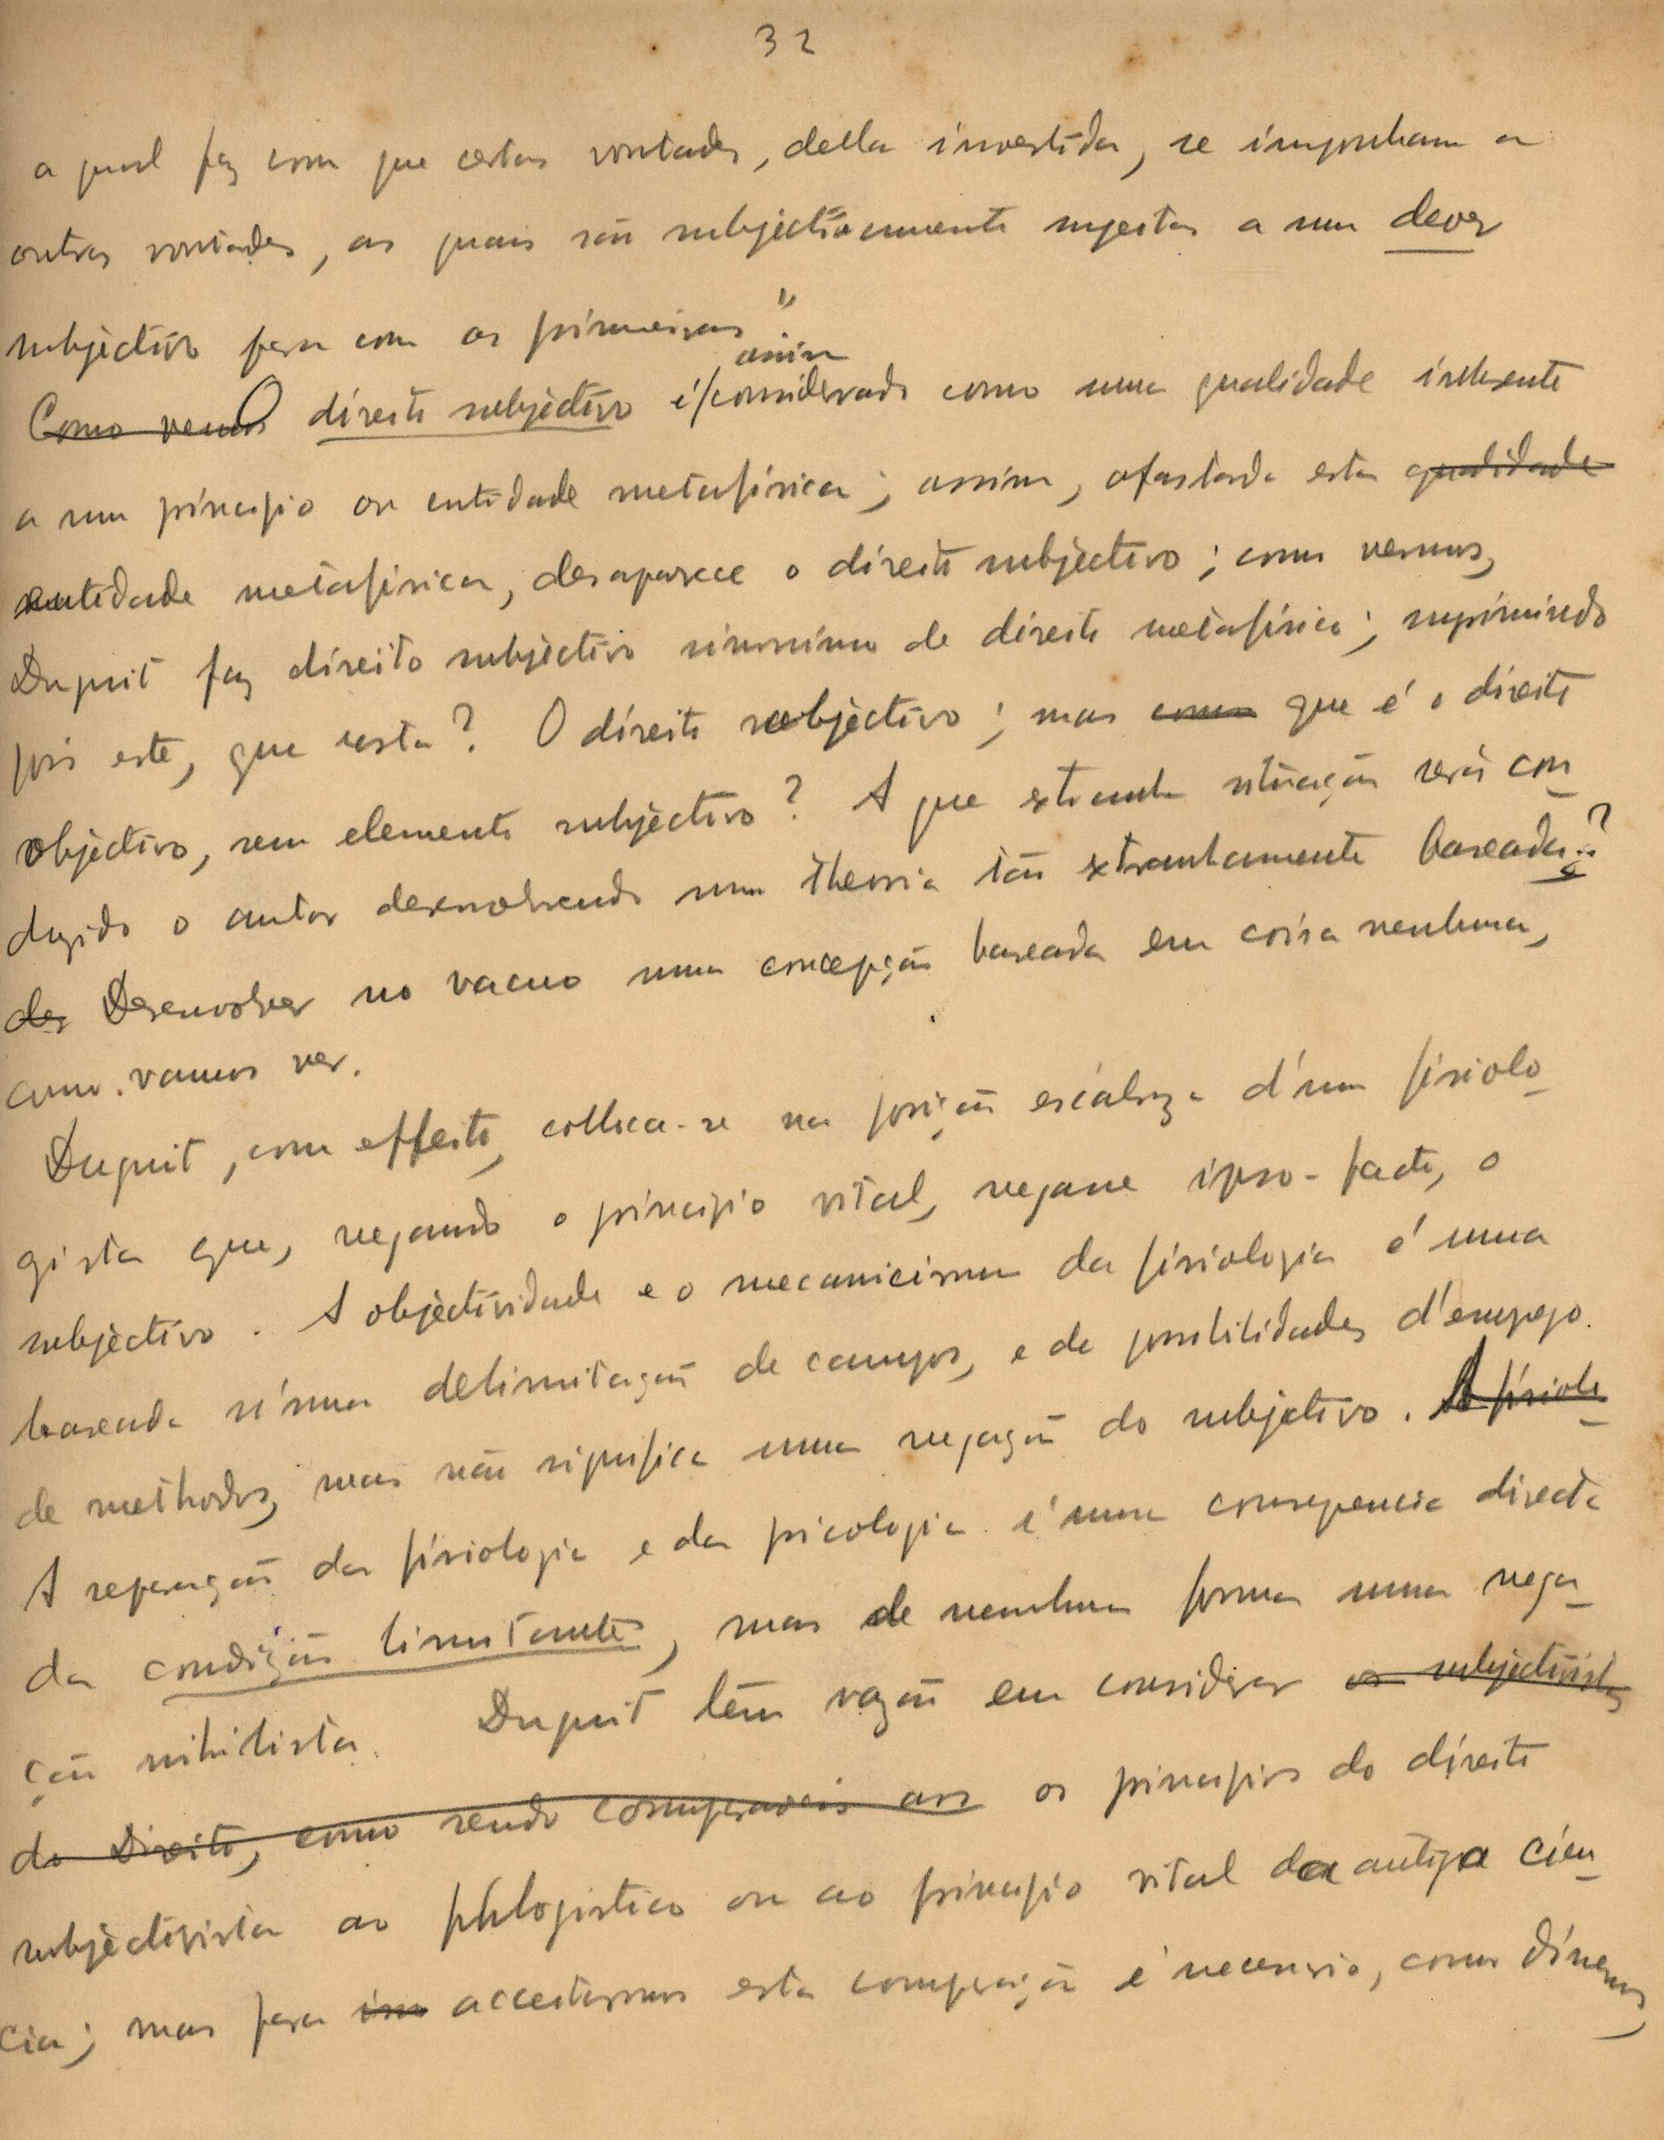 32
a qual fez com que certas vontades, della investidas, se imponham a
outras vontades, as quais são subjectivamente sujeitas a um dever
subjectivo para com as primeiras".
assim
Como vemos O direito subjectivo é/considerado como uma qualidade inherente
a um principio ou entidade metafísica; assim, afastada esta qualidade
entidade metafísica, desaparece o direito subjectivo; como vemos,
Duguit faz direito subjectivo sinonimo de direito metafísico; suprimindo
pois este, que resta? O direito objectivo; mas como que é o direito
objectivo, sem elemento subjectivo? A que extranha situação será con-
duzido o autor desenvolvendo uma theoria tão extranhamente baseada?
des Desenvolver no vacuo uma concepção baseada em coisa nenhuma,
como vamos ver.
Duguit, com effeito, colloca-se na posição escabroza d'um fisiolo-
gista que, negando o principio vital, negasse ipso-facto, o
subjectivo. A objectividade e o mecanicismo da fisiologia é uma
baseada n'uma delimitação de campos, e de possibilidades d'emprego
de methodos, mas não significa uma negação do subjetivo. A fisiolo-
A separação da fisiologia e da psicologia é uma consequencia directa
da condição limitante, mas de nenhuma forma uma nega-
ção nihilista. Duguit têm razão em considerar os subjectivistas
do Direito, como sendo comparaveis aos os principios do direito
subjectivista ao phlogistico ou ao principio vital da antiga cien-
cia; mas para acceitarmos esta comparação é necessario, como dissemos,